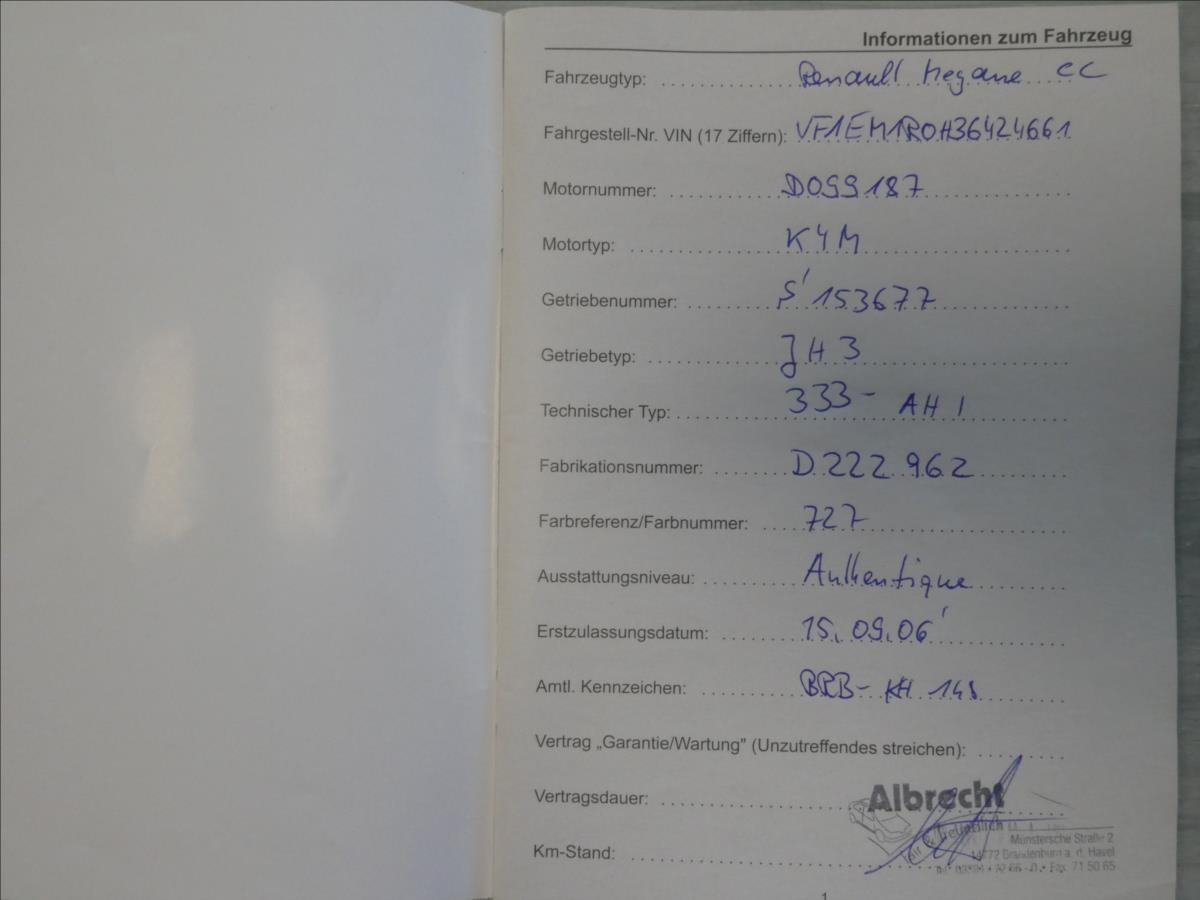 Informationen zum Fahrzeug
Fahrzeugtyp: Renault Megane CC
Fahrgestell-Nr. VIN (17 Ziffern): VF1EM1R0H36424661
Motornummer: D099187
Motortyp: K4M
Getriebenummer: S'153677
Getriebetyp: JH3
Technischer Typ: 333- AH 1
Fabrikationsnummer: D222962
Farbreferenz/Farbnummer: 727
Ausstattungsniveau: Authentique
Erstzulassungsdatum: 15.09.06
Amtl. Kennzeichen: BRB- KH
Vertrag „Garantie/Wartung" (Unzutreffendes streichen):
Vertragsdauer:
Albrecht
fair & freundlich
Münstersche Straße 2
Km-Stand:
14772 Brandenburg a. d. Havel
Fax: 71 50 65
1